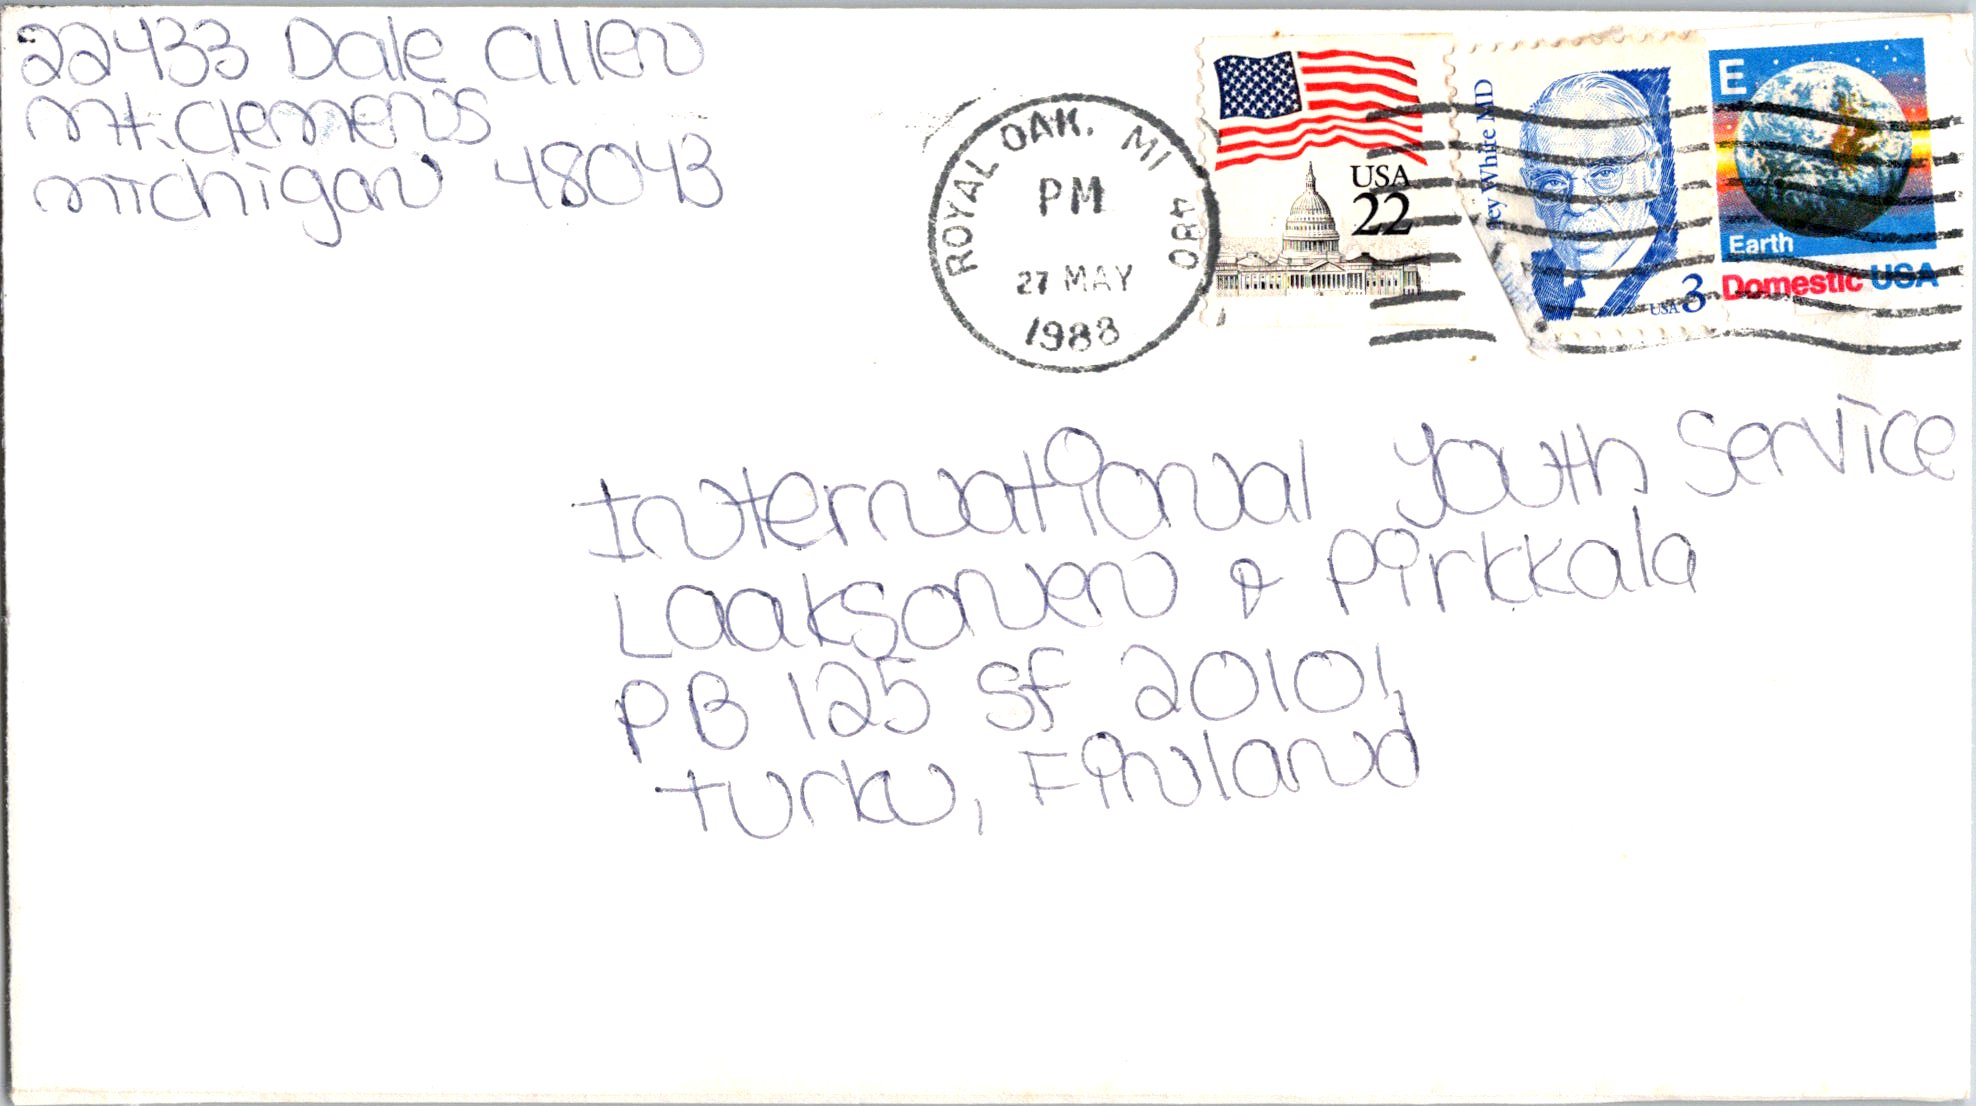 22433 Dale Allen
Mt. Clemens
Michigan 48043
ROYAL OAK, MI 480
PM
27 MAY
1988
USA
22
ley White MD
USA 3
E
Earth
Domestic USA
International Youth Service
Laaksonen & Pirkkala
PB 125 SF 20101,
Turku, Finland